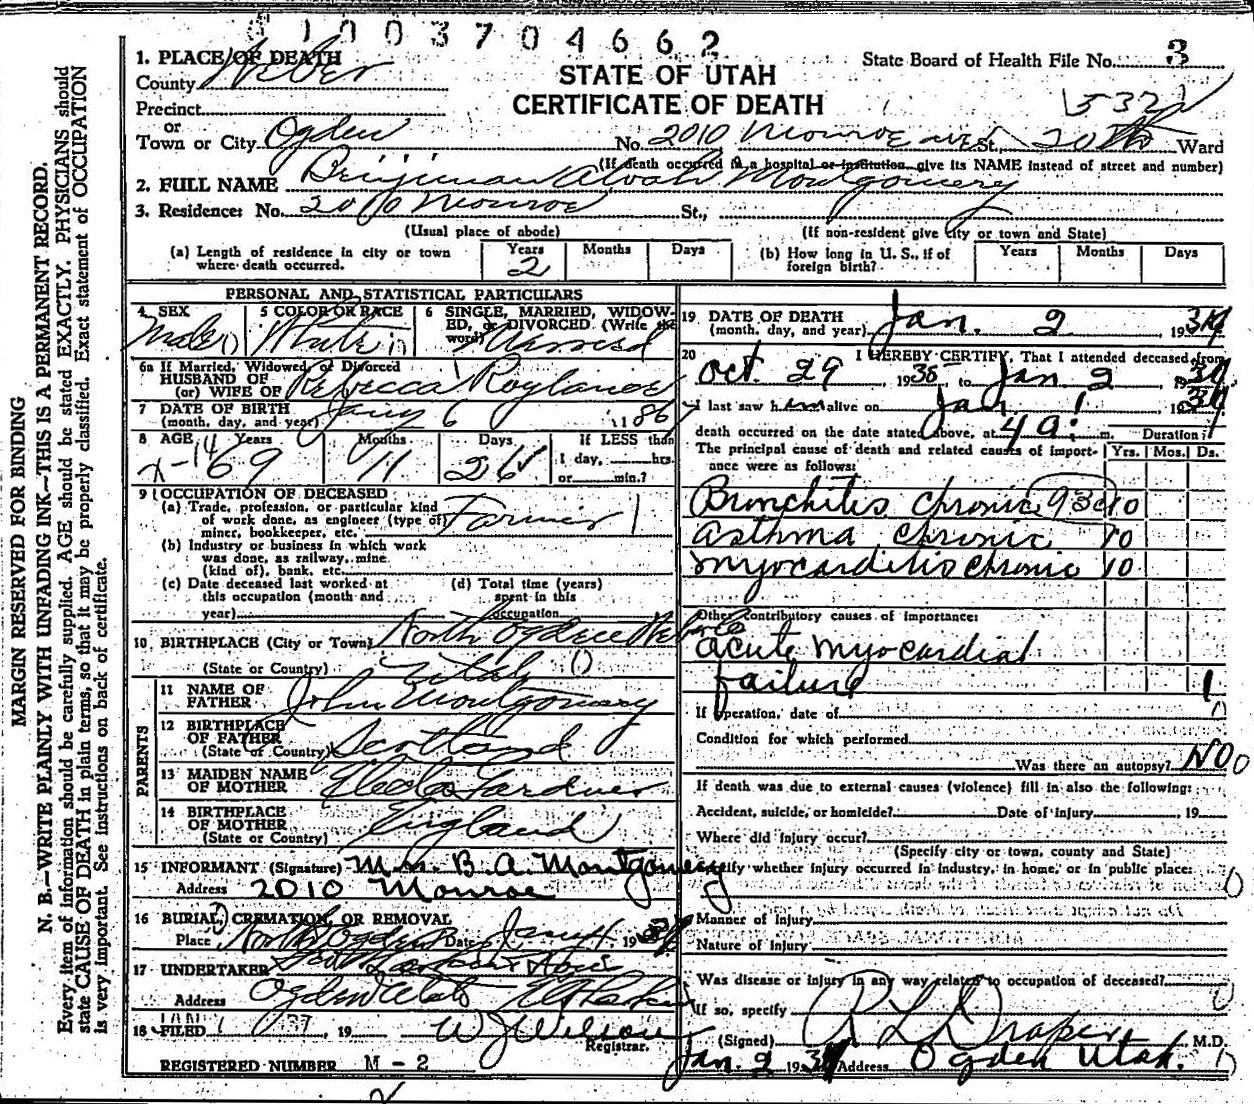 1003704662
1. PLACE OF DEATH
County Weber
State Board of Health File No. 3
STATE OF UTAH
CERTIFICATE OF DEATH
Precinct
or
Town or City Ogden No. 2010 Monroe ave St., 20th Ward
(If death occurred in a hospital or institution give its NAME instead of street and number)
2. FULL NAME Benjiman Alvah Montgomery
3. Residence: No. 2010 Monroe St.,
(Usual place of abode) (If non-resident give city or town and State)
(a) Length of residence in city or town where death occurred. Years 2 Months Days
(b) How long in U. S., if of foreign birth? Years Months Days
PERSONAL AND STATISTICAL PARTICULARS
4 SEX Male
5 COLOR OR RACE White
6 SINGLE, MARRIED, WIDOWED, or DIVORCED. (Write the word) Married
6a If Married, Widowed, or Divorced
HUSBAND OF
(or) WIFE OF Rebecca Roylance
7 DATE OF BIRTH
(month, day, and year) Jany 6 1867
8 AGE Years 69 Months 11 Days 26 If LESS than
1 day, hrs.
or min.?
9 OCCUPATION OF DECEASED
(a) Trade, profession, or particular kind
of work done, as engineer (type of)
miner, bookkeeper, etc. Farmer
(b) Industry or business in which work
was done, as railway, mine
(kind of), bank, etc.
(c) Date deceased last worked at
this occupation (month and
year)
(d) Total time (years)
spent in this
occupation
10 BIRTHPLACE (City or Town) North Ogden Weber
(State or Country) Utah
PARENTS
11 NAME OF
FATHER John Montgomery
12 BIRTHPLACE
OF FATHER
(State or Country) Scotland
13 MAIDEN NAME
OF MOTHER Gardner
14 BIRTHPLACE
OF MOTHER
(State or Country) England
15 INFORMANT (Signature) Mrs. B. A. Montgomery
Address 2010 Monroe
16 BURIAL, CREMATION, OR REMOVAL
Place North Ogden Date Jany 4 19
17 UNDERTAKER
Address Ogden Utah
18 FILED JAN 37, 19 W J Wilson
Registrar.
REGISTERED NUMBER M - 2
19 DATE OF DEATH
(month, day, and year) Jan. 2 1937
20 I HEREBY CERTIFY, That I attended deceased from
Oct. 29, 1935, to Jan 2, 1937
I last saw him alive on Jan 1 1937
death occurred on the date stated above, at 4 a. m. Duration:
The principal cause of death and related causes of importance were as follows: Yrs. Mos. Ds.
Bronchitis chronic 93c 10
asthma chronic 10
myocarditis chronic 10
Other contributory causes of importance:
acute myocardial
failure 1
If operation, date of
Condition for which performed
Was there an autopsy? NO
If death was due to external causes (violence) fill in also the following:
Accident, suicide, or homicide? Date of injury, 19
Where did injury occur?
(Specify city or town, county and State)
Specify whether injury occurred in industry, in home, or in public place:
Manner of injury
Nature of injury
Was disease or injury in any way related to occupation of deceased?
If so, specify
(Signed) R L Draper M.D.
Jan. 2 1937 Address Ogden Utah.
MARGIN RESERVED FOR BINDING
N. B.—WRITE PLAINLY WITH UNFADING INK—THIS IS A PERMANENT RECORD.
Every item of information should be carefully supplied. AGE should be stated EXACTLY. PHYSICIANS should
state CAUSE OF DEATH in plain terms, so that it may be properly classified. Exact statement of OCCUPATION
is very important. See instructions on back of certificate.